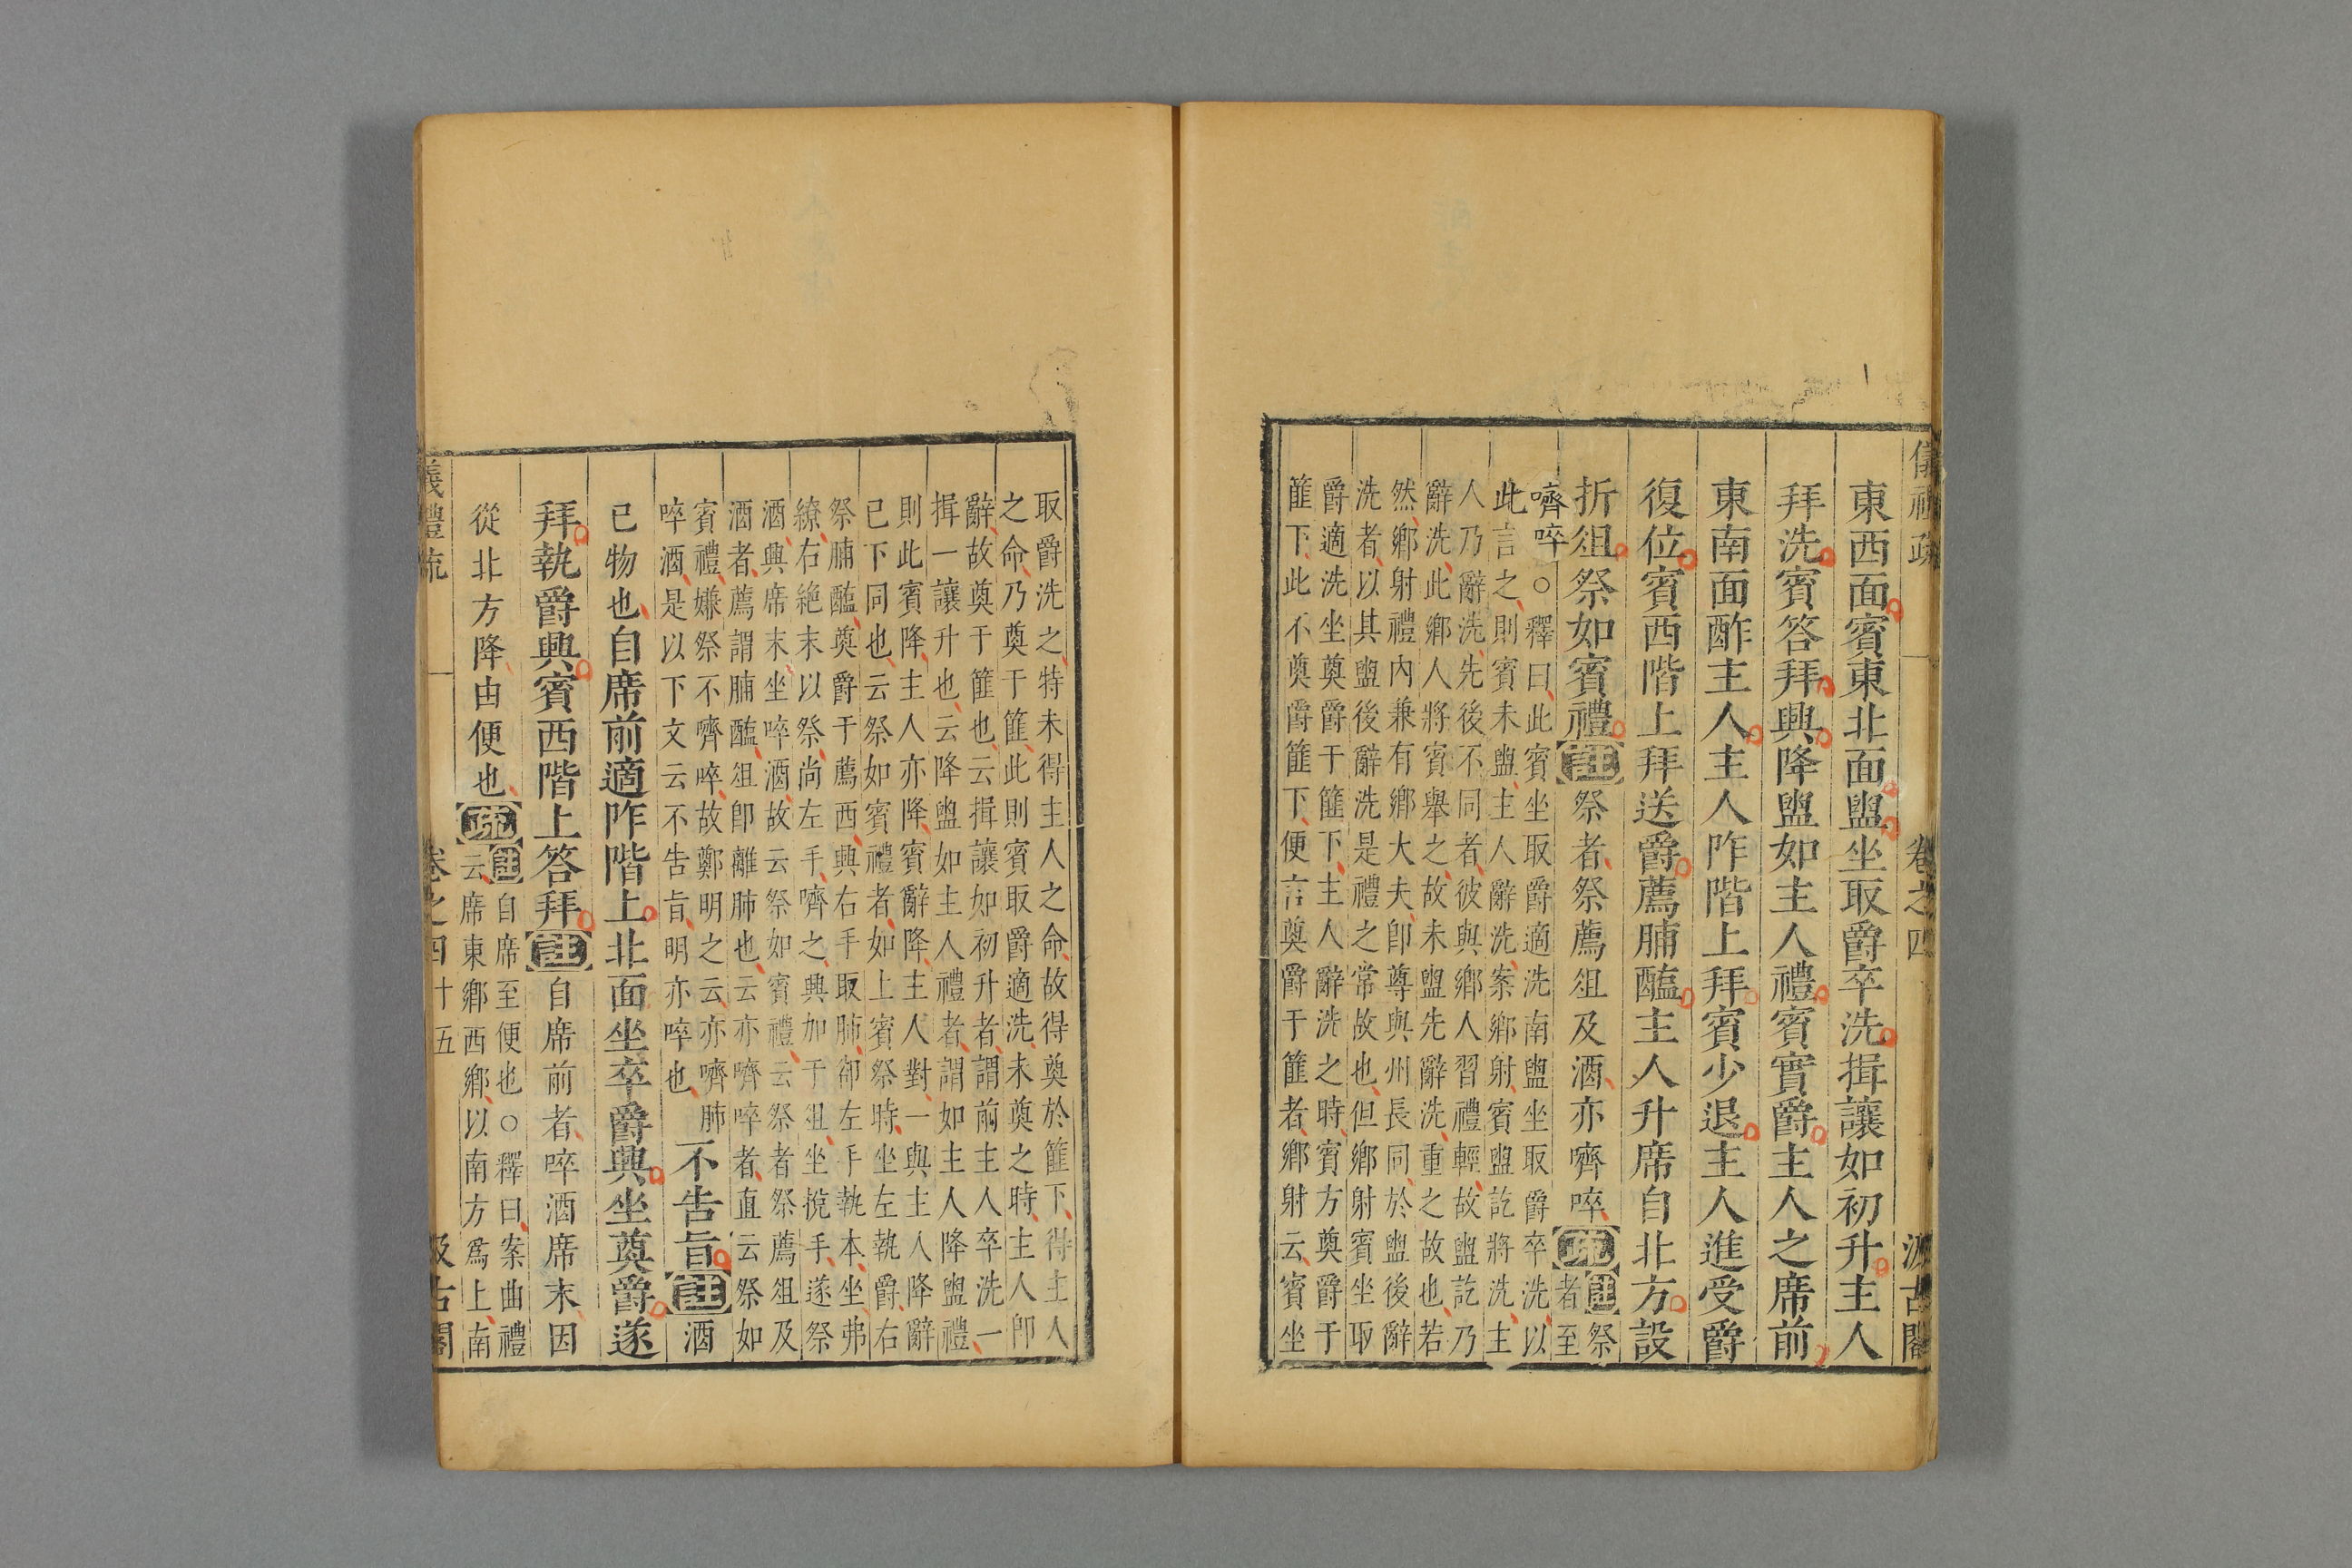 儀禮疏 卷之四 汲古閣
東西面賓東北面盥坐取爵卒洗揖讓如初升主人
拜洗賓答拜興降盥如主人禮賓實爵主人之席前
東南面酢主人主人阼階上拜賓少退主人進受爵
復位賓西階上拜送爵薦脯醢主人升席自北方設
折俎祭如賓禮註祭者祭薦俎及酒亦嚌啐疏註祭
者至
嚌啐○釋曰此賓坐取爵適洗南盥坐取爵卒洗以
此言之則賓未盥主人辭洗案鄉射賓盥訖將洗主
人乃辭洗先後不同者彼與鄉人習禮輕故盥訖乃
辭洗此鄉人將賓舉之故未盥先辭洗重之故也若
然鄉射禮內兼有鄉大夫卽尊與州長同於盥後辭
洗者以其盥後辭洗是禮之常故也但鄉射賓坐取
爵適洗坐奠爵于篚下主人辭洗之時賓方奠爵于
篚下此不奠爵篚下便言奠爵于篚者鄉射云賓坐
取爵洗之特未得主人之命故得奠於篚下得主人
之命乃奠于篚此則賓取爵適洗未奠之時主人卽
辭故奠于篚也云揖讓如初升者謂前主人卒洗一
揖一讓升也云降盥如主人禮者謂如主人降盥禮
則此賓降主人亦降賓辭降主人對一與主人降辭
已下同也云祭如賓禮者如上賓祭時坐左執爵右
祭脯醢奠爵于薦西興右手取肺卻左手執本坐弗
繚右絶末以祭尚左手嚌之興加于俎坐挩手遂祭
酒興席末坐啐酒故云祭如賓禮云祭者祭薦俎及
酒者薦謂脯醢俎卽離肺也云亦嚌啐者直云祭如
賓禮嫌祭不嚌啐故鄭明之云亦嚌肺
啐酒是以下文云不告旨明亦啐也
不告旨註酒
已物也自席前適阼階上北面坐卒爵興坐奠爵遂
拜執爵興賓西階上答拜註自席前者啐酒席末因
從北方降由便也疏註自席至便也○釋曰案曲禮
云席東鄉西鄉以南方爲上南
儀禮疏 卷之四 十五 汲古閣